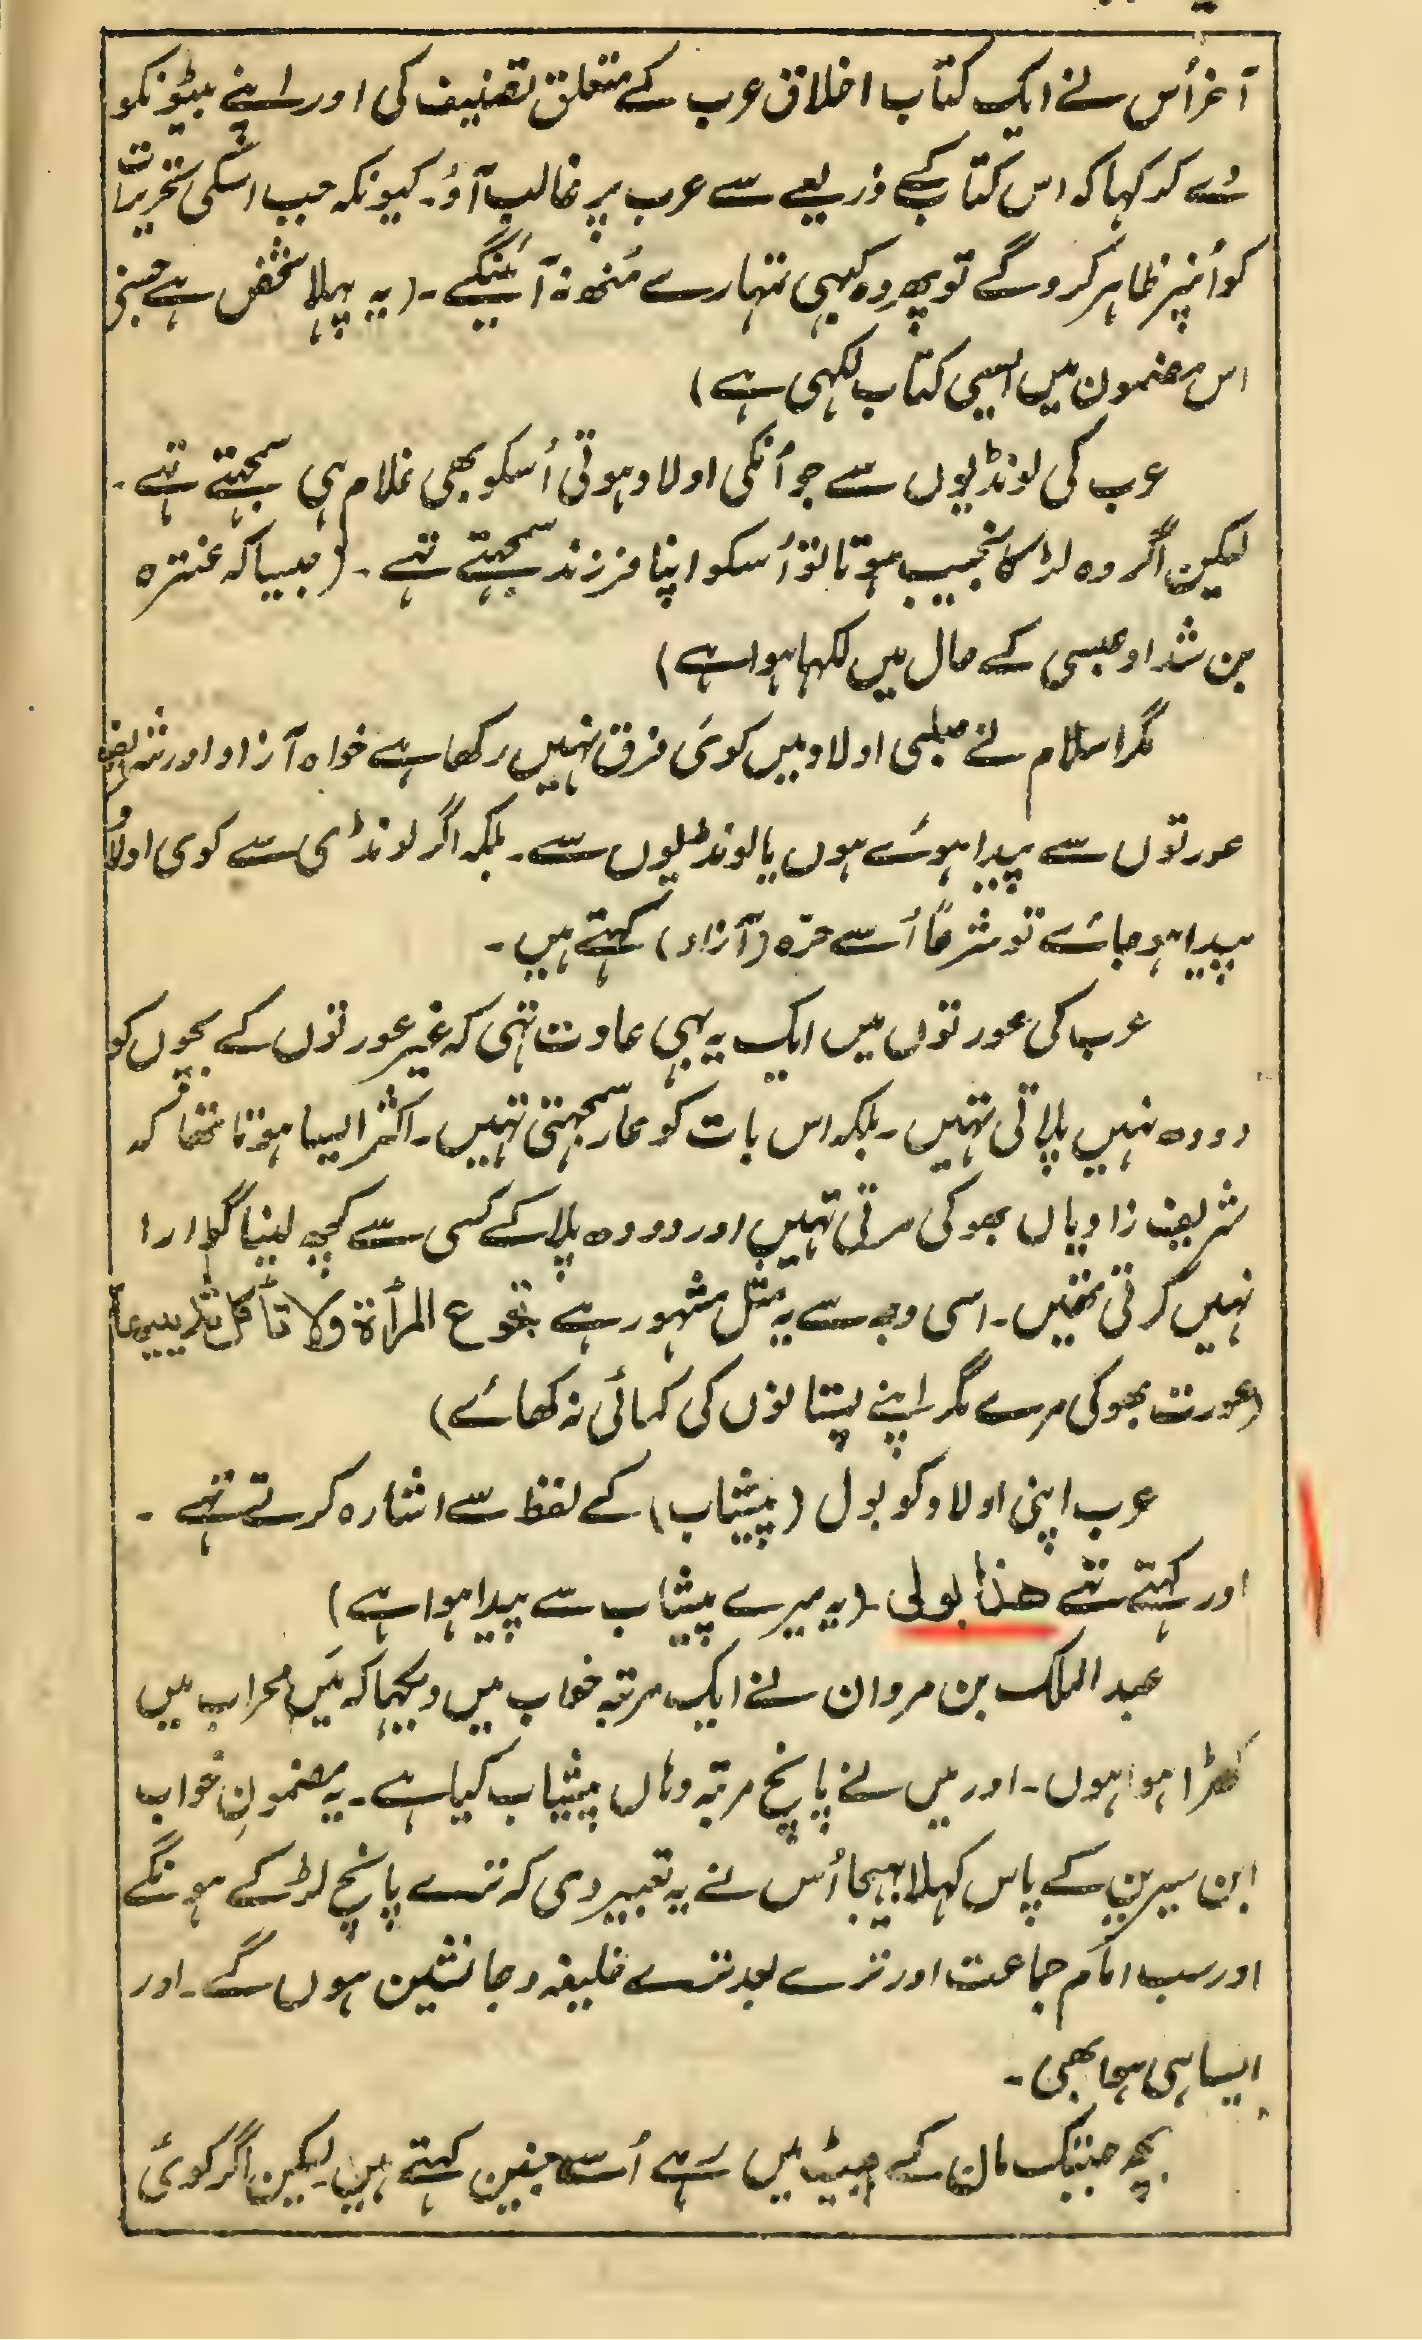 آخر اُس نے ایک کتاب اخلاق عرب کے متعلق تصنیف کی اور اپنے بیٹونکو
دے کر کہا کہ اس کتاب کے ذریعے سے عرب پر غالب آؤ۔ کیونکہ جب اسکی تحریرات
کو اُنپر ظاہر کروگے تو پھر وہ کبہی تمہارے مُنھ نہ آئینگے۔ (یہ پہلا شخص ہے جسنے
اس مضمون میں ایسی کتاب لکہی ہے)
عرب کی لونڈیوں سے جو اُنکی اولاد ہوتی اُسکو بھی غلام ہی سمجہتے تہے۔
لیکن اگر وہ لڑکا نجیب ہوتا تو اُسکو اپنا فرزند سمجہتے تہے۔ (جیسا کہ عنترہ
بن شداد عبسی کے حال میں لکہا ہوا ہے)
مگر اسلام نے صلبی اولاد میں کوئی فرق نہیں رکھا ہے خواہ آزاد اور شریف
عورتوں سے پیدا ہوئے ہوں یا لونڈیوں سے۔ بلکہ اگر لونڈی سے کوی اولاد
پیدا ہو جائے تو شرعًا اُسے حرّہ (آزاد) کہتے ہیں۔
عرب کی عورتوں میں ایک یہ بہی عادت تہی کہ غیر عورتوں کے بچوں کو
دودہ نہیں پلاتی تہیں۔ بلکہ اس بات کو عار سمجہتی تہیں۔ اکثر ایسا ہوتا تھا کہ
شریف زادیاں بھوکی مرتی تہیں اور دودہ پلا کے کسی سے کچہ لینا گوارا
نہیں کرتی تھیں۔ اسی وجہ سے یہ مثل مشہور ہے تجوع المرأة ولا تأکل ثدییہا
(عورت بھوکی مرے مگر اپنے پستانوں کی کمائی نہ کھائے)
عرب اپنی اولاد کو بول (پیشاب) کے لفظ سے اشارہ کرتے تہے۔
اور کہتے تہے ھذا بولی۔ (یہ میرے پیشاب سے پیدا ہوا ہے)
عبد الملک بن مروان نے ایک مرتبہ خواب میں دیکہا کہ مَیں محراب میں
کھڑا ہوا ہوں۔ اور میں نے پانچ مرتبہ وہاں پیشاب کیا ہے۔ یہ مضمونِ خواب
ابن سیرین کے پاس کہلا بہیجا اُس نے یہ تعبیر دی کہ ترے پانچ لڑکے ہونگے
اور سب امام جماعت اور ترے بعد ترے خلیفہ و جانشین ہوں گے۔ اور
ایسا ہی ہوا بھی۔
بچہ جبتک ماں کے پیٹ میں رہے اُسے جنین کہتے ہیں لیکن اگر کوئی